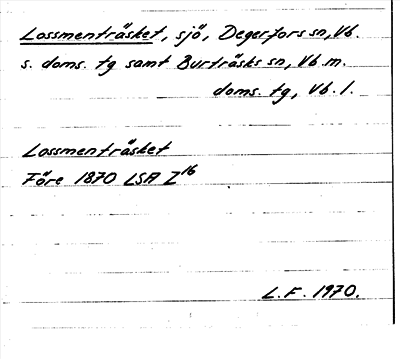 Lossmenträsket, sjö, Degerfors sn, Vb.
s. doms. tg samt Burträsks sn, Vb. m.
doms. tg, Vb. l.
Lossmenträsket
Före 1870 LSA Z16
L.F. 1970.